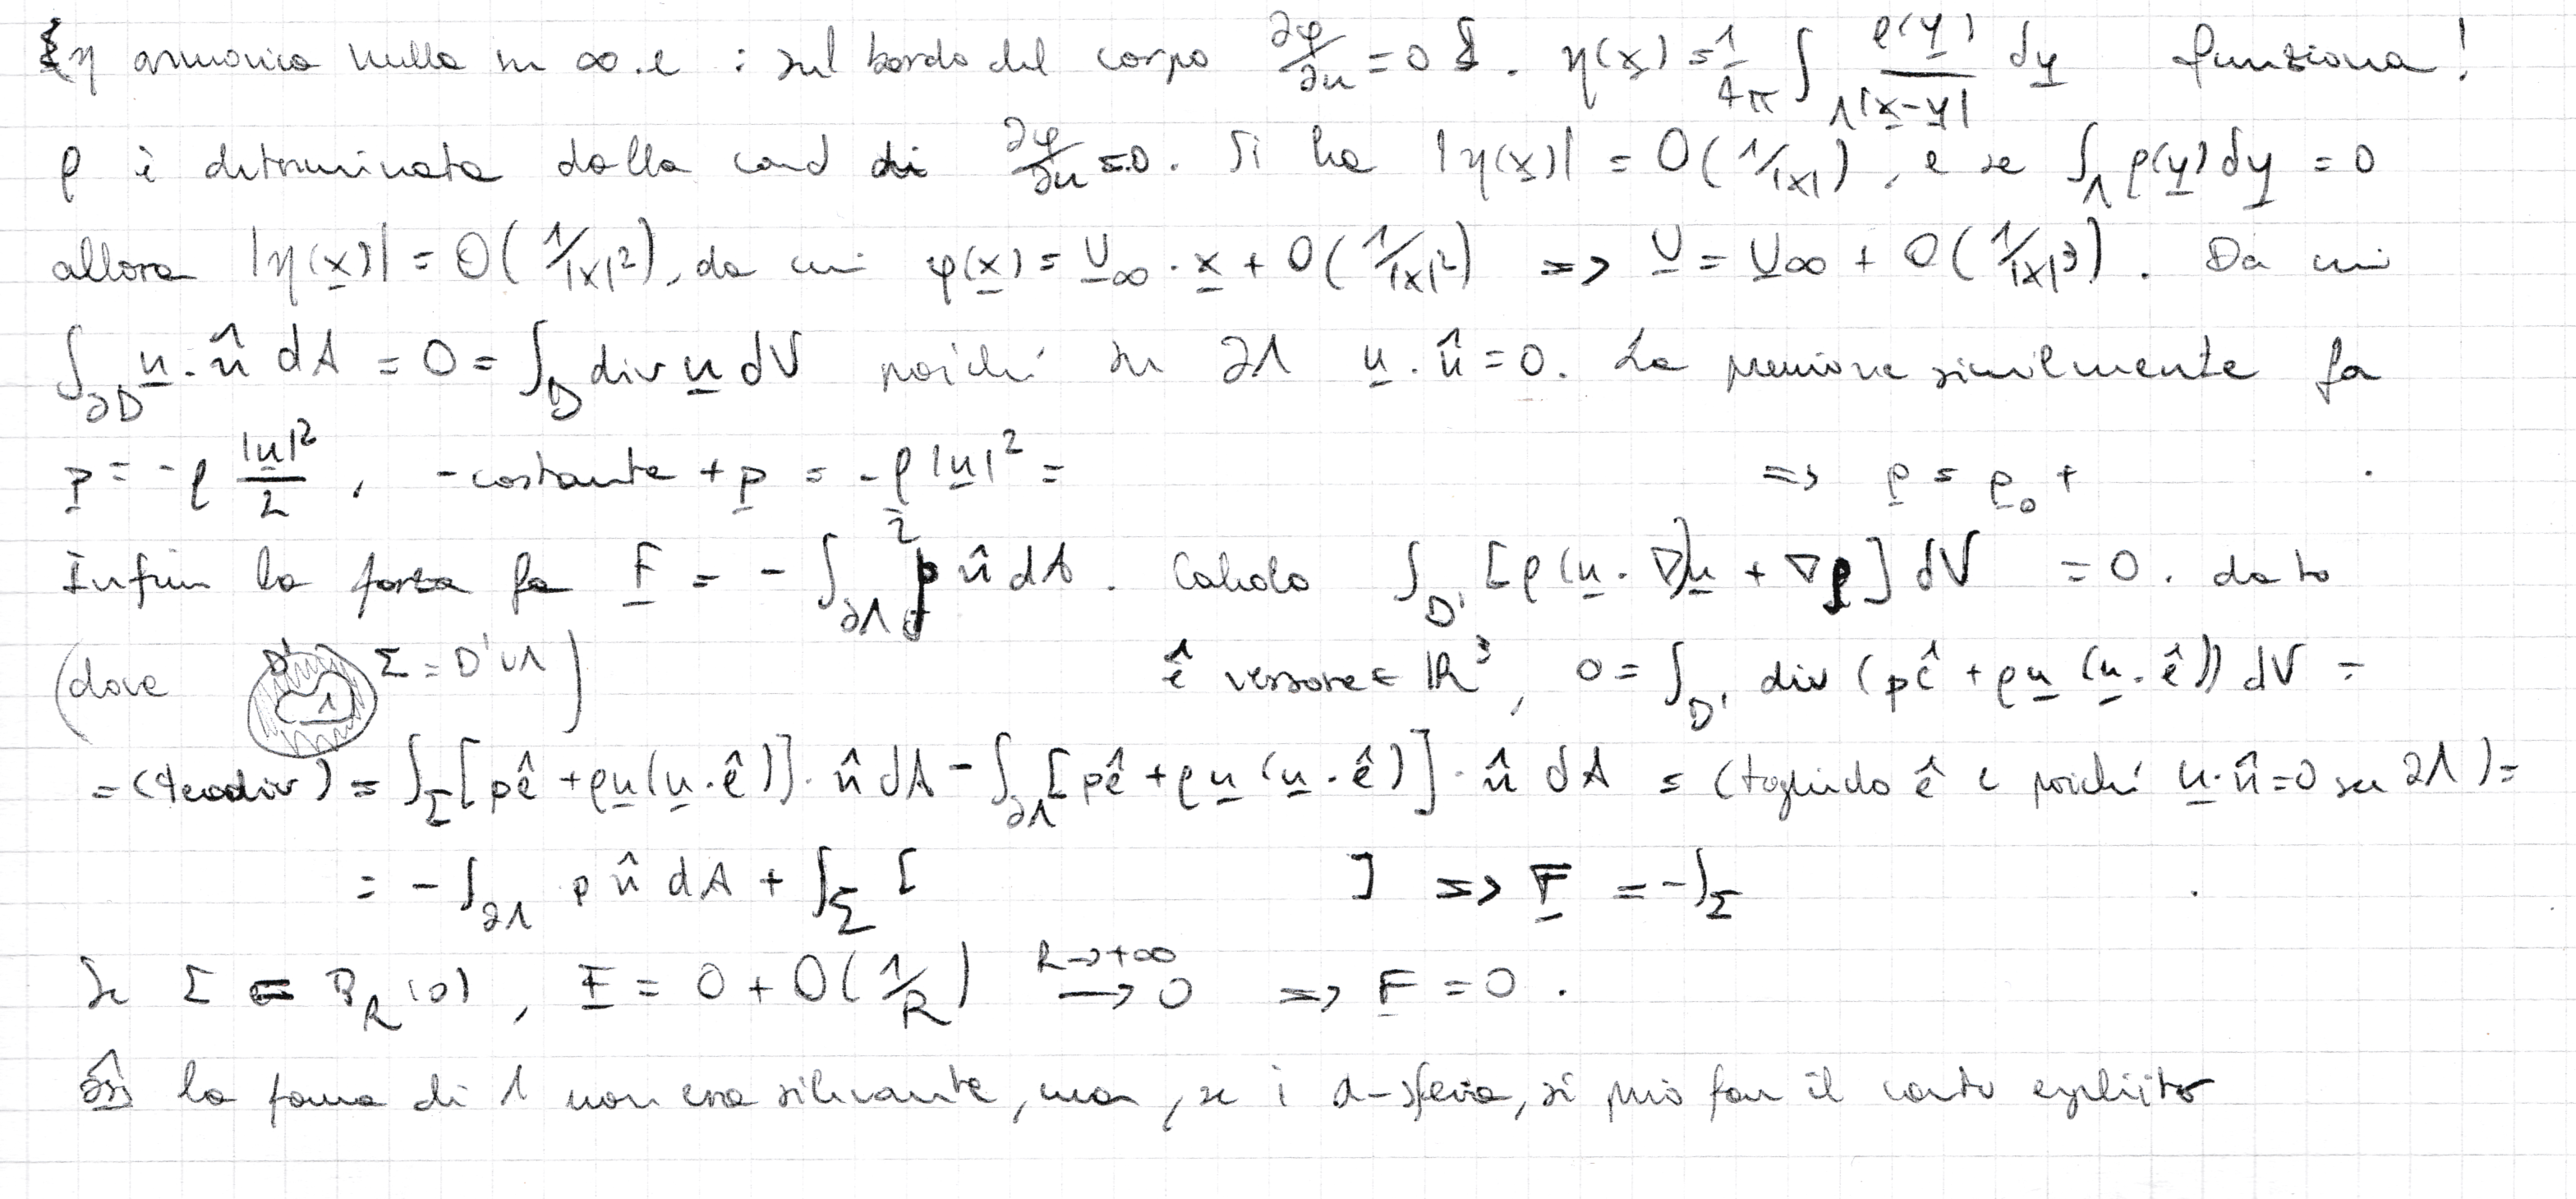 {η armonica nulla in ∞ e : sul bordo del corpo ∂φ/∂n = 0 }. η(x) = 1/4π ∫_Λ ρ(y)/|x-y| dy funziona!
ρ è determinata dalla cond di ∂φ/∂n = 0. Si ha |η(x)| = O(1/|x|), e se ∫_Λ ρ(y) dy = 0
allora |η(x)| = O(1/|x|²), da cui φ(x) = U∞ · x + O(1/|x|²) => U = U∞ + O(1/|x|³). Da cui
∫_∂D u · n̂ dA = 0 = ∫_D div u dV poiché su ∂Λ u · n̂ = 0. La pressione similmente fa
p = -ρ |u|²/2, -costante + p = -ρ/2 |u|² = => p = p₀ + .
Infine la forza fa F = -∫_∂Λ p n̂ dA. Calcolo ∫_D' [ρ(u · ∇)u + ∇p] dV = 0. dato
(dove D' Λ Σ = D' ∪ Λ) ê versore ∈ ℝ³, 0 = ∫_D' div (pê + ρu(u · ê)) dV =
= (teo div) = ∫_Σ [pê + ρu(u · ê)] · n̂ dA - ∫_∂Λ [pê + ρu(u · ê)] · n̂ dA = (togliendo ê e poiché u · n̂ = 0 su ∂Λ) =
= -∫_∂Λ p n̂ dA + ∫_Σ [ ] => F = -∫_Σ .
Se Σ = B_R(0), F = 0 + O(1/R) R→+∞ → 0 => F = 0.
oss la forma di Λ non era rilevante, ma, se è a-sfera, si può far il conto esplicito